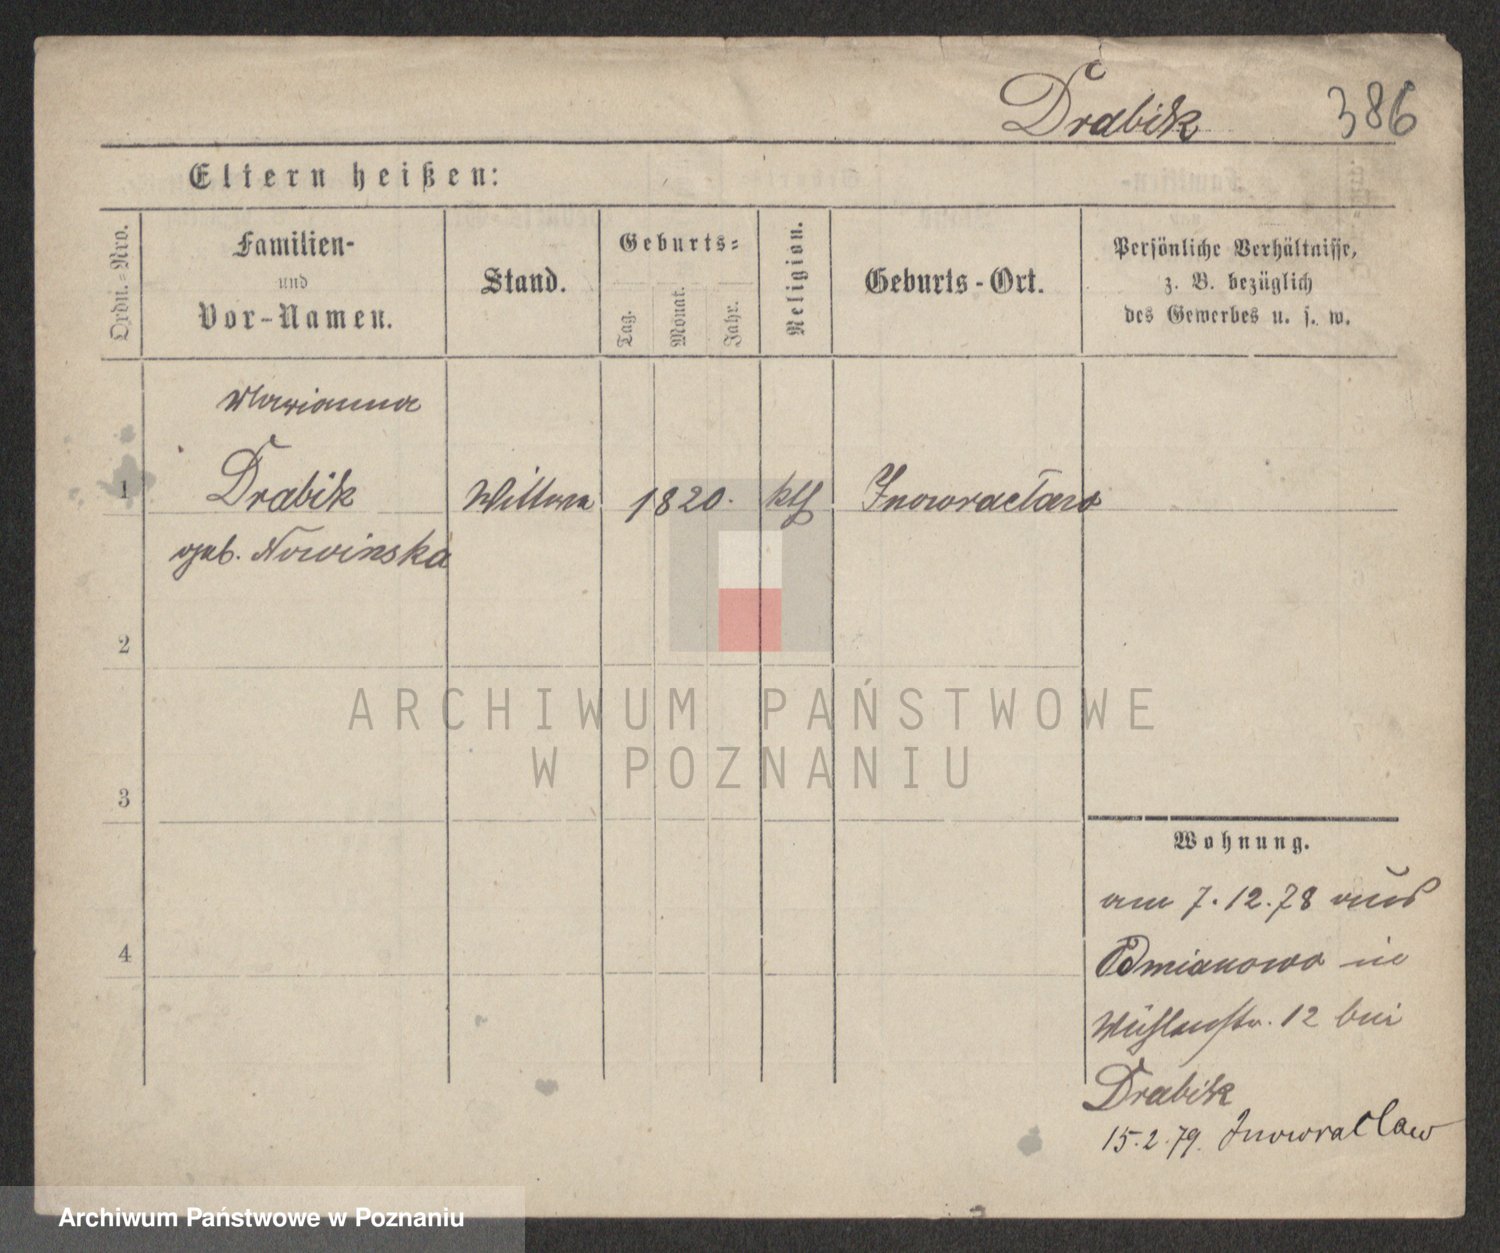 Drabik 386
Eltern heißen:
Ordn.-Nro.
Familien-
und
Vor-Namen.
Stand.
Geburts-
Tag.
Monat.
Jahr.
Religion.
Geburts-Ort.
Persönliche Verhältnisse,
z. B. bezüglich
des Gewerbes u. s. w.
Marianna
1 Drabik Wittwe 1820. kth Inowracław
geb. Nowinska
2
3
4
Wohnung.
am 7.12.78 aus
in
Mühlenstr. 12 bei
Drabik
15.2.79. Inowraclaw
ARCHIWUM PAŃSTWOWE
W POZNANIU
Archiwum Państwowe w Poznaniu